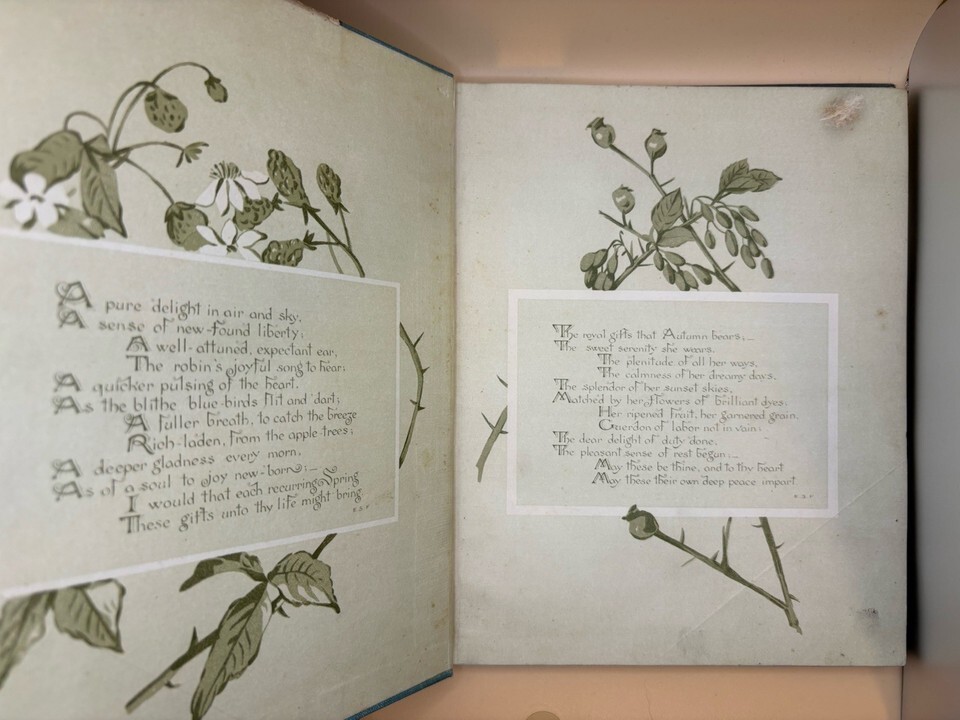 A pure delight in air and sky,
A sense of new-found liberty;
A well-attuned, expectant ear,
The robin's joyful song to hear;
A quicker pulsing of the heart,
As the blithe blue-birds flit and dart;
A fuller breath, to catch the breeze
Rich-laden, from the apple-trees;
A deeper gladness every morn,
As of a soul to joy new-born;—
I would that each recurring Spring
These gifts unto thy life might bring
The royal gifts that Autumn bears;—
The sweet serenity she wears.
The plenitude of all her ways,
The calmness of her dreamy days.
The splendor of her sunset skies,
Matched by her flowers of brilliant dyes;
Her ripened fruit, her garnered grain,
Guerdon of labor not in vain;
The dear delight of duty done,
The pleasant sense of rest begun;—
May these be thine, and to thy heart
May these their own deep peace impart.